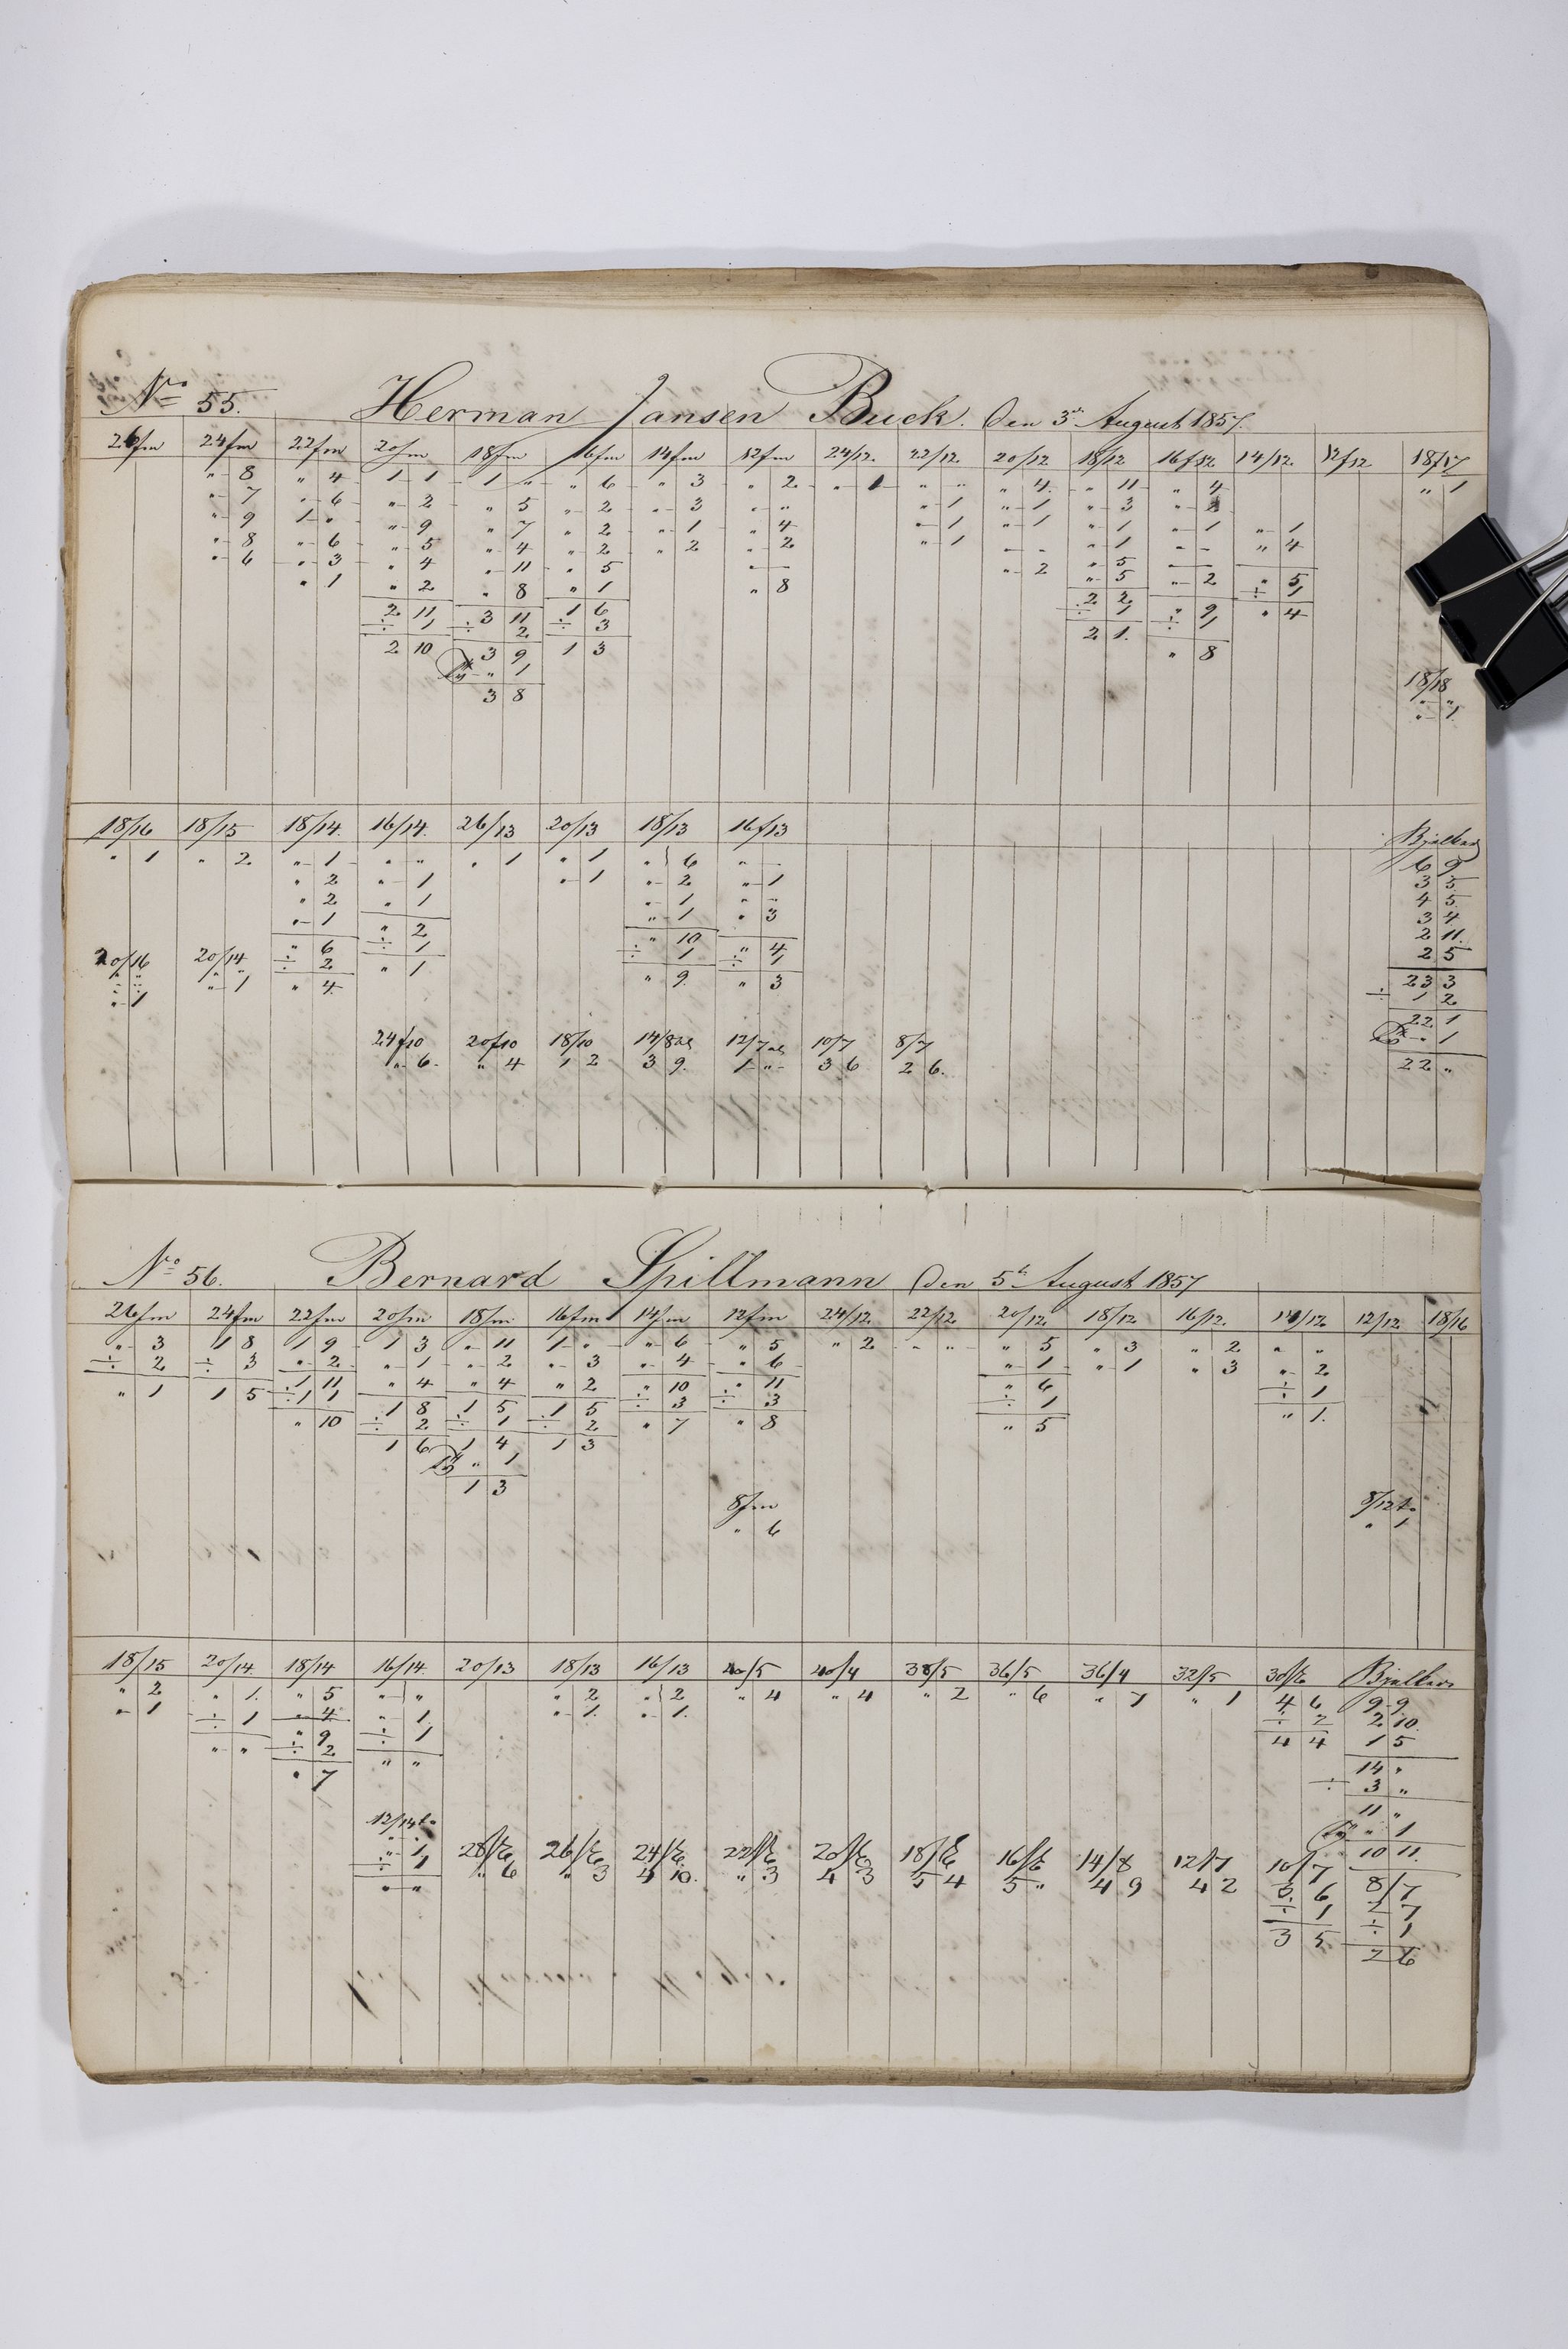 No 55. Herman Jansen Buck. Den 3de August 1857.
26fm 24fm 22fm 20fm 18fm 16fm 14fm 12fm 24/12. 22/12. 20/12 18/12 16f12 14/12. 12f12 18f17
" 8 " 4 1 1 1 " " 6 " 3 " 2 " 1 " " " 4 " 11 " 4 " 1
" 7 " 6 " 2 " 5 " 2 " 3 " " " 1 " 1 " 3
" 9 1 " " 9 " 7 " 2 " 1 " 4 " 1 " 1 " 1 " 1 " 1
" 8 " 6 " 5 " 4 " 2 " 2 " 2 " 1 " " " 1 " " " 4
" 6 " 3 " 4 " 11 " 5 " " " 2 " 5 " " " 5
" 1 " 2 " 8 " 1 " 8 " 5 " 2 ÷ 1
2 11 3 11 1 6 2 2 " 9 " 4
÷ 1 ÷ 2 ÷ 3 ÷ 1 ÷ 1
2 10 3 9 1 3 2 1. " 8
" 1 18/18
3 8 " "
" 1
18/16 18/15 18/14. 16/14. 26/13 20/13 18/13 16f13 Bjelker
" 1 " 2 " 1 " " " 1 " 1 " 6 " " 6 9
" 2 " 1 " 1 " 2 " 1 3 5
" 2 " 1 " 1 " " 4 5
" 1 " 2 " 1 " 3 3 4
" 6 ÷ 1 " 10 " 4 2 11.
20/16 20/14 ÷ 2 " 1 ÷ 1 ÷ 1 2 5
" " " 1 " 4 " 9. " 3 23 3
" 1 ÷ 1 2
22 1
24f10 20f10 18/10 14/8 12/7 10/7 8/7 " 1
" 6 " 4 1 2 3 9. 1 " 3 6 2 6. 22 "
No 56. Bernard Spillmann Den 5te August 1857
26fm 24fm 22fm 20fm 18fm 16fm 14fm 12fm 24/12. 22/12 20/12. 18/12 16/12. 14/12 12/12 18/16
" 3 1 8 1 9 1 3 " 11 1 " " 6 " 5 " 2 " " " 5 " 3 " 2 " "
÷ 2 ÷ 3 " 2 " 1 " 2 " 3 " 4 " 6 " 1 " 1 " 3 " 2
" 1 1 5 1 11 " 4 " 4 " 2 " 10 " 11 " 6 ÷ 1
÷ 1 1 1 8 1 5 1 5 ÷ 3 ÷ 3 ÷ 1 " 1.
" 10 ÷ 2 ÷ 1 ÷ 2 " 7 " 8 " 5
1 6 1 4 1 3
" 1
1 3
8fm 8/12
" 6 " 1
18/15 20/14. 18/14 16/14. 20/13 18/13 16/13 40/5 40/4 38/5 36/5 36/4 32/5 30/6 Bjelker
" 2 " 1. " 5 " " " 2 " 2 " 4 " 4 " 2 " 6 " 7 " 1 4 6 9 9.
" 1 ÷ 1 " 4 " 1 " 1. " 1. ÷ 2 2 10.
" " " 9 ÷ 1 4 4 1 5
÷ 2 " " 14 "
" 7 ÷ 3 "
12/14 11 "
" 1 28/6 26/6 24/6 22/6 20/6 18/6 16/6 14/8 12/7 " 1
÷ 1 " 6 " 3 4 10. " 3 4 3 5 4 5 " 4 9 4 2 10/7 10 11.
" " 3 6 8/7
÷ 1 2 7
3 5 ÷ 1
2 6